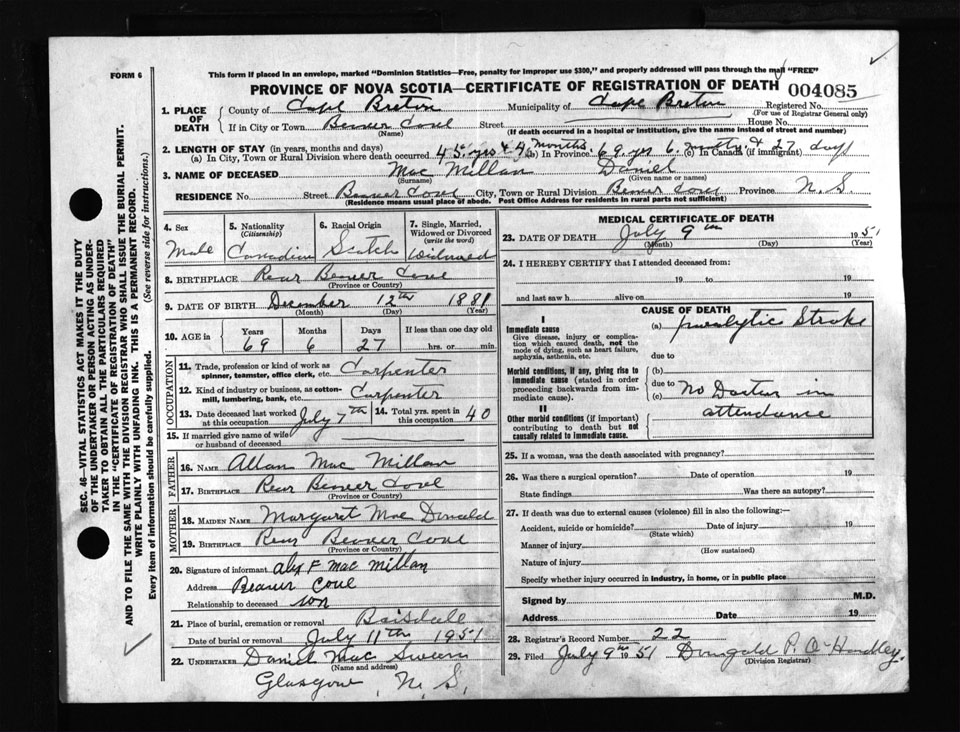 FORM 6
This form if placed in an envelope, marked "Dominion Statistics—Free, penalty for improper use $300," and properly addressed will pass through the mail "FREE"
PROVINCE OF NOVA SCOTIA—CERTIFICATE OF REGISTRATION OF DEATH 004085
1. PLACE OF DEATH County of Cape Breton Municipality of Cape Breton Registered No.
(For use of Registrar General only)
If in City or Town Beaver Cove Street House No.
(Name) (If death occurred in a hospital or institution, give the name instead of street and number)
2. LENGTH OF STAY (in years, months and days)
(a) In City, Town or Rural Division where death occurred 45 yrs & 4 months (b) In Province 69 yrs 6 months & 27 days (c) In Canada (if immigrant)
3. NAME OF DECEASED Mac Millan Daniel
(Surname) (Given name or names)
RESIDENCE No. Street Beaver Cove City, Town or Rural Division Beaver Cove Province N.S
(Residence means usual place of abode. Post Office Address for residents in rural parts not sufficient)
4. Sex Male
5. Nationality (Citizenship) Canadian
6. Racial Origin Scotch
7. Single, Married, Widowed or Divorced (write the word) Widowed
8. BIRTHPLACE Rear Beaver Cove
(Province or Country)
9. DATE OF BIRTH December 12th 1881
(Month) (Day) (Year)
10. AGE in Years Months Days If less than one day old
69 6 27 hrs. or min.
OCCUPATION
11. Trade, profession or kind of work as spinner, teamster, office clerk, etc. Carpenter
12. Kind of industry or business, as cotton-mill, lumbering, bank, etc. Carpenter
13. Date deceased last worked at this occupation July 7th 14. Total yrs. spent in this occupation 40
15. If married give name of wife or husband of deceased
FATHER
16. NAME Allan Mac Millan
17. BIRTHPLACE Rear Beaver Cove
(Province or Country)
MOTHER
18. MAIDEN NAME Margaret Mac Donald
19. BIRTHPLACE Rear Beaver Cove
(Province or Country)
20. Signature of informant Alex F Mac Millan
Address Beaver Cove
Relationship to deceased son
21. Place of burial, cremation or removal Boisdale
Date of burial or removal July 11th 1951
22. UNDERTAKER Daniel Mac Swain
(Name and address)
Glasgow, N.S.
MEDICAL CERTIFICATE OF DEATH
23. DATE OF DEATH July 9th 1951
(Month) (Day) (Year)
24. I HEREBY CERTIFY that I attended deceased from:
19 to 19
and last saw h alive on 19
CAUSE OF DEATH
I
Immediate cause
Give disease, injury or complication which caused death, not the mode of dying, such as heart failure, asphyxia, asthenia, etc.
(a) paralytic Stroke
due to
Morbid conditions, if any, giving rise to immediate cause (stated in order proceeding backwards from immediate cause).
(b)
due to
(c) No Doctor in attendance
II
Other morbid conditions (if important) contributing to death but not causally related to immediate cause.
25. If a woman, was the death associated with pregnancy?
26. Was there a surgical operation? Date of operation 19
State findings Was there an autopsy?
27. If death was due to external causes (violence) fill in also the following:—
Accident, suicide or homicide? Date of injury 19
(State which)
Manner of injury
(How sustained)
Nature of injury
Specify whether injury occurred in industry, in home, or in public place
Signed by M.D.
Address Date 19
28. Registrar's Record Number 22
29. Filed July 9th 1951 Dougald P. O'Handley.
(Division Registrar)
SEC. 46—VITAL STATISTICS ACT MAKES IT THE DUTY
OF THE UNDERTAKER OR PERSON ACTING AS UNDER-
TAKER TO OBTAIN ALL THE PARTICULARS REQUIRED
IN THE "CERTIFICATE OF REGISTRATION OF DEATH"
AND TO FILE THE SAME WITH THE DIVISION REGISTRAR WHO SHALL ISSUE THE BURIAL PERMIT.
WRITE PLAINLY WITH UNFADING INK. THIS IS A PERMANENT RECORD.
Every item of information should be carefully supplied. (See reverse side for instructions.)